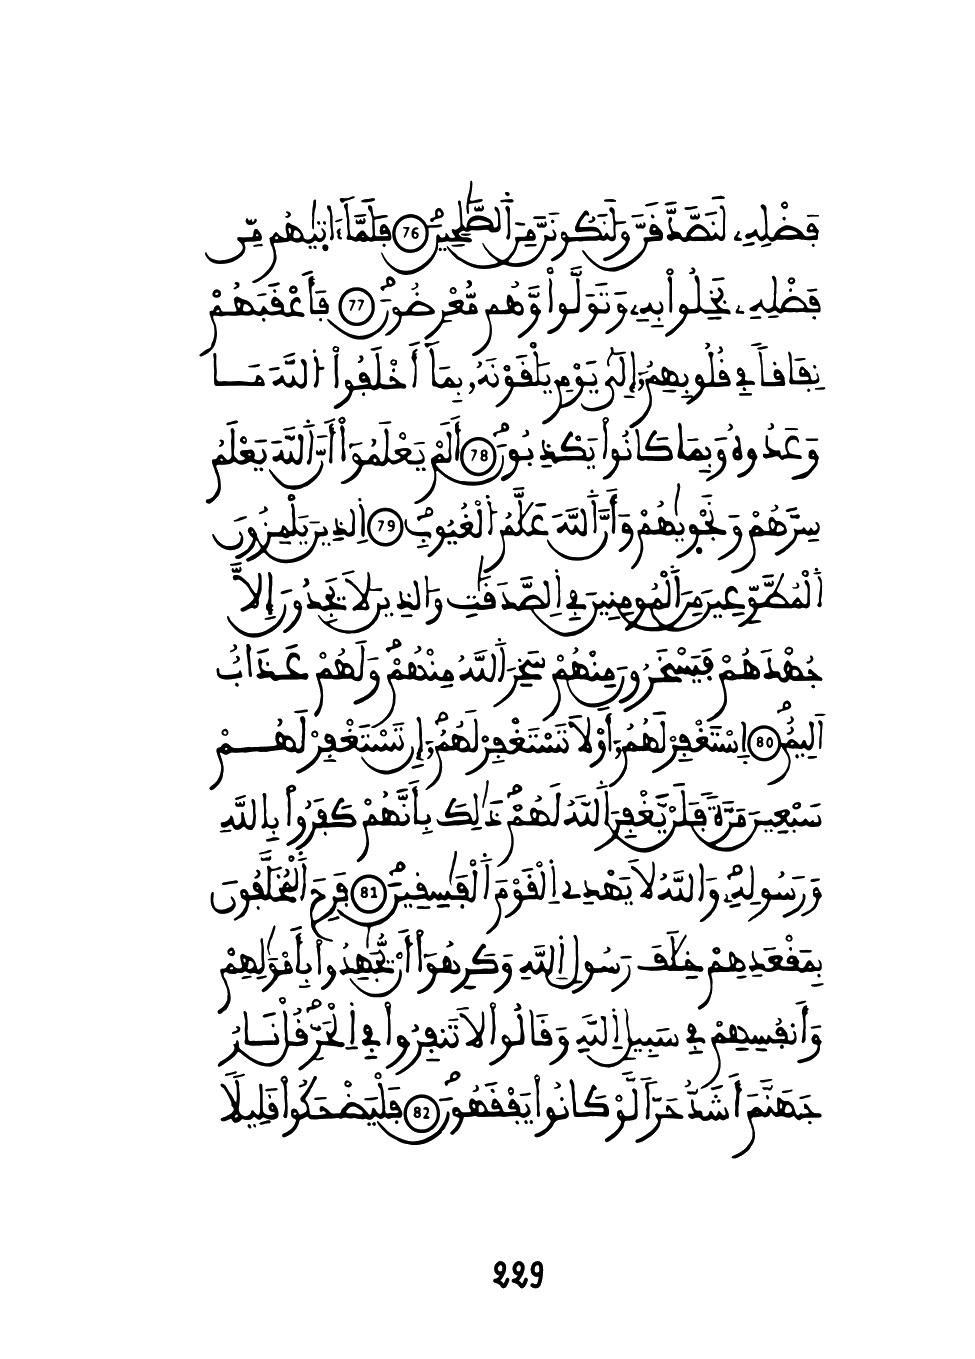 فَضْلِهِۦ لَنَصَّدَّقَنَّ وَلَنَكُونَنَّ مِنَ ٱلصَّٰلِحِينَ 76 فَلَمَّآ ءَاتٰىٰهُم مِّن
فَضْلِهِۦ بَخِلُواْ بِهِۦ وَتَوَلَّواْ وَّهُم مُّعْرِضُونَ 77 فَأَعْقَبَهُمْ
نِفَاقاٗ فِے قُلُوبِهِمُۥٓ إِلَىٰ يَوْمِ يَلْقَوْنَهُۥ بِمَآ أَخْلَفُواْ اُ۬للَّهَ مَا
وَعَدُوهُ وَبِمَا كَانُواْ يَكْذِبُونَ 78 أَلَمْ يَعْلَمُوٓاْ أَنَّ اَ۬للَّهَ يَعْلَمُ
سِرَّهُمْ وَنَجْوٰىٰهُمْ وَأَنَّ اَ۬للَّهَ عَلَّٰمُ اُ۬لْغُيُوبِ 79 اِ۬لذِينَ يَلْمِزُونَ
اَ۬لْمُطَّوِّعِينَ مِنَ اَ۬لْمُومِنِينَ فِے اِ۬لصَّدَقَٰتِ وَالذِينَ لَا يَجِدُونَ إِلَّا
جُهْدَهُمْ فَيَسْخَرُونَ مِنْهُمْ سَخِرَ اَ۬للَّهُ مِنْهُمْ وَلَهُمْ عَذَابٌ
اَلِيمٌ 80 اِ۪سْتَغْفِرْ لَهُمُۥٓ أَوْ لَا تَسْتَغْفِرْ لَهُمُۥٓ إِن تَسْتَغْفِرْ لَهُمْ
سَبْعِينَ مَرَّةٗ فَلَنْ يَّغْفِرَ اَ۬للَّهُ لَهُمْ ذَٰلِكَ بِأَنَّهُمْ كَفَرُواْ بِاللَّهِ
وَرَسُولِهِۦ وَاللَّهُ لَا يَهْدِے اِ۬لْقَوْمَ اَ۬لْفَٰسِقِينَ 81 فَرِحَ اَ۬لْمُخَلَّفُونَ
بِمَقْعَدِهِمْ خِلَٰفَ رَسُولِ اِ۬للَّهِ وَكَرِهُوٓاْ أَنْ يُّجَٰهِدُواْ بِأَمْوَٰلِهِمْ
وَأَنفُسِهِمْ فِے سَبِيلِ اِ۬للَّهِ وَقَالُواْ لَا تَنفِرُواْ فِے اِ۬لْحَرِّ قُلْ نَارُ
جَهَنَّمَ أَشَدُّ حَرّاٗ لَّوْ كَانُواْ يَفْقَهُونَ 82 فَلْيَضْحَكُواْ قَلِيلاٗ
229